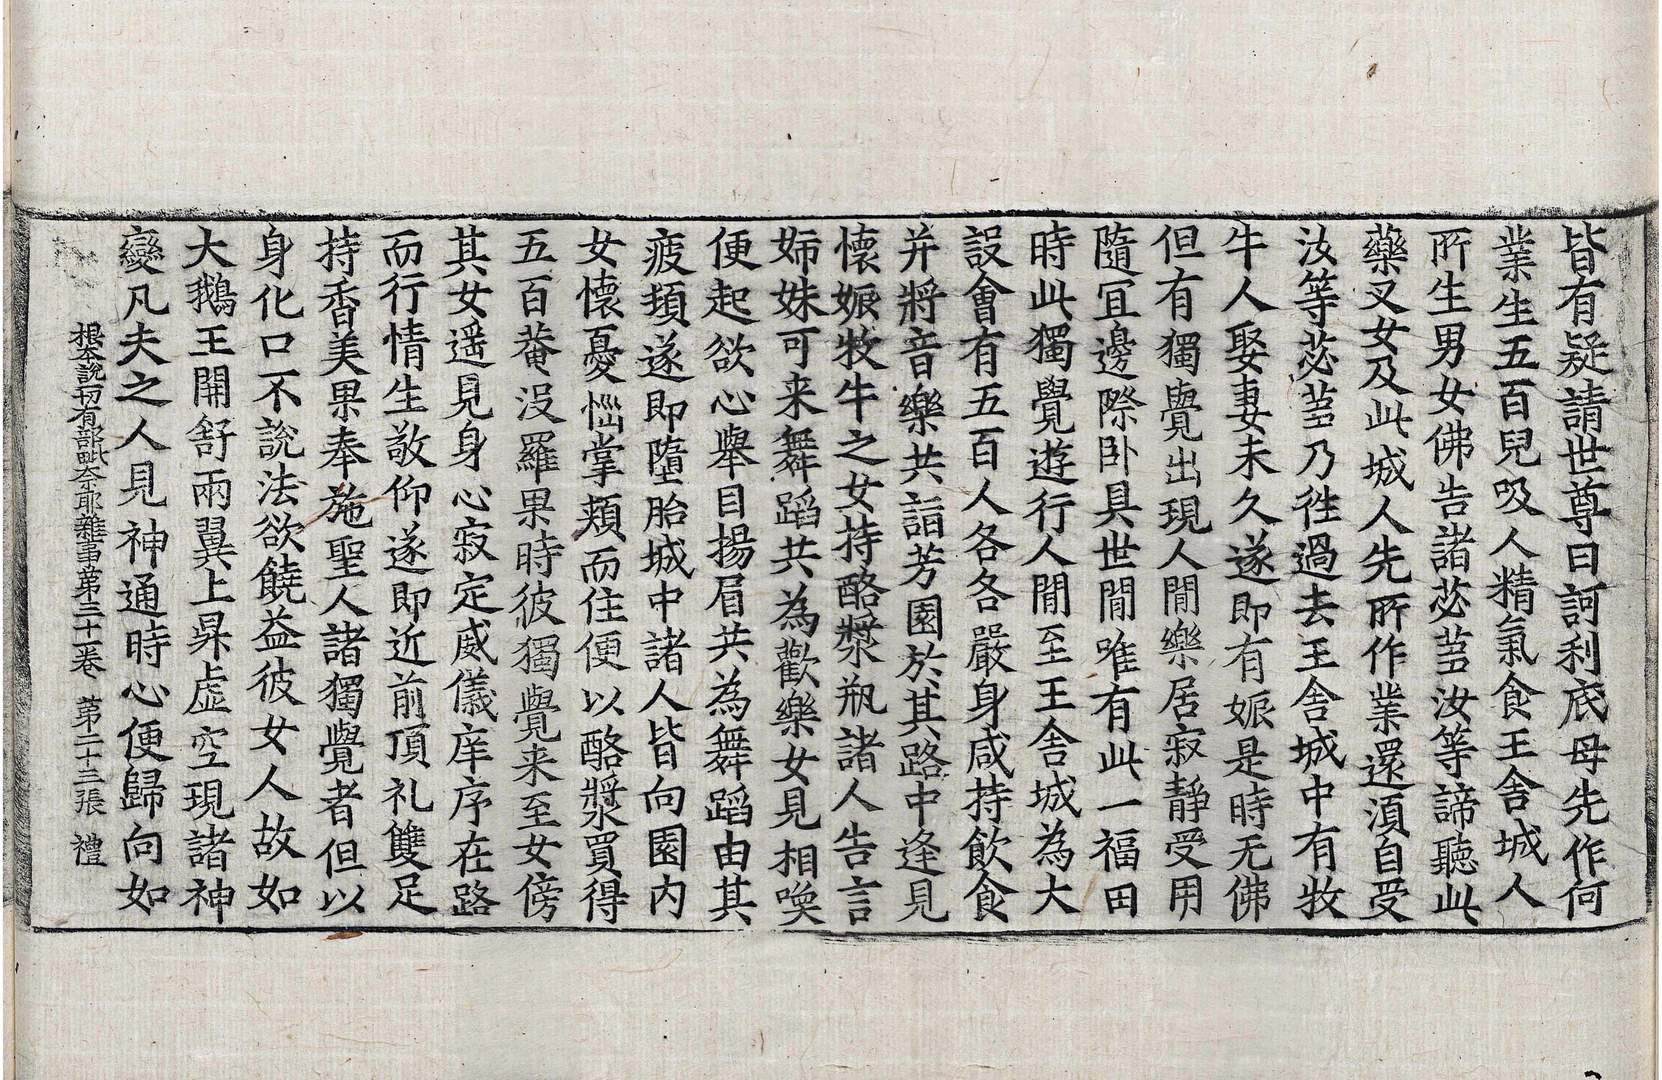 皆有疑請世尊曰訶利底母先作何
業生五百兒吸人精氣食王舍城人
所生男女佛告諸苾芻汝等諦聽此
藥叉女及此城人先所作業還湏自受
汝等苾芻乃徃過去王舍城中有牧
牛人娶妻未久遂即有娠是時无佛
但有獨覺出現人閒樂居寂靜受用
隨冝邊際卧具世閒唯有此一福田
時此獨覺遊行人閒至王舍城為大
設會有五百人各各嚴身咸持飲食
并將音樂共詣芳園於其路中逢見
懷娠牧牛之女持酪漿瓶諸人告言
姉妹可来舞蹈共為歡樂女見相喚
便起欲心舉目揚眉共為舞蹈由其
疲頓遂即墮胎城中諸人皆向園內
女懷憂惱掌頰而住便以酪漿買得
五百菴没羅果時彼獨覺来至女傍
其女遥見身心寂定威儀庠序在路
而行情生敬仰遂即近前頂礼雙足
持香美果奉施聖人諸獨覺者但以
身化口不說法欲饒益彼女人故如
大鵝王開舒兩翼上昇虛空現諸神
變凡夫之人見神通時心便歸向如
根本說一切有部毗奈耶雜事第三十一卷 第二十三張 禮